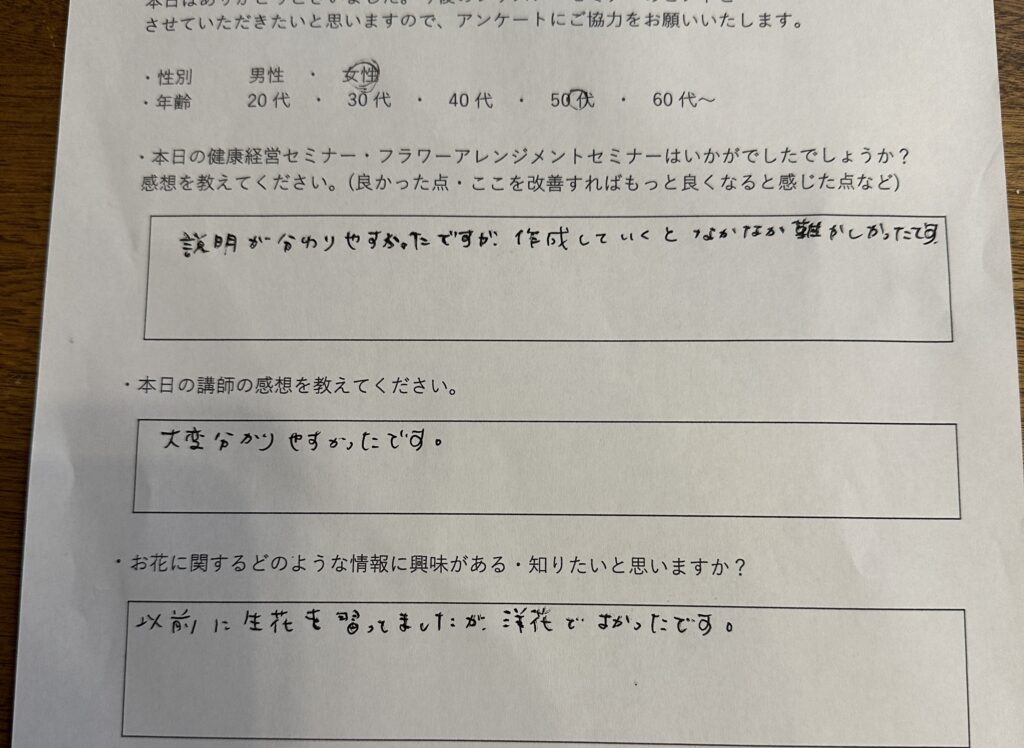 させていただきたいと思いますので、アンケートにご協力をお願いいたします。
・性別 男性 ・ 女性
・年齢 20代 ・ 30代 ・ 40代 ・ 50代 ・ 60代~
・本日の健康経営セミナー・フラワーアレンジメントセミナーはいかがでしたでしょうか?
感想を教えてください。(良かった点・ここを改善すればもっと良くなると感じた点など)
説明が分わりやすかったですが、作成していくとなかなか難かしかったです
・本日の講師の感想を教えてください。
大変分かりやすかったです。
・お花に関するどのような情報に興味がある・知りたいと思いますか?
以前に生花を習ってましたが、洋花でよかったです。